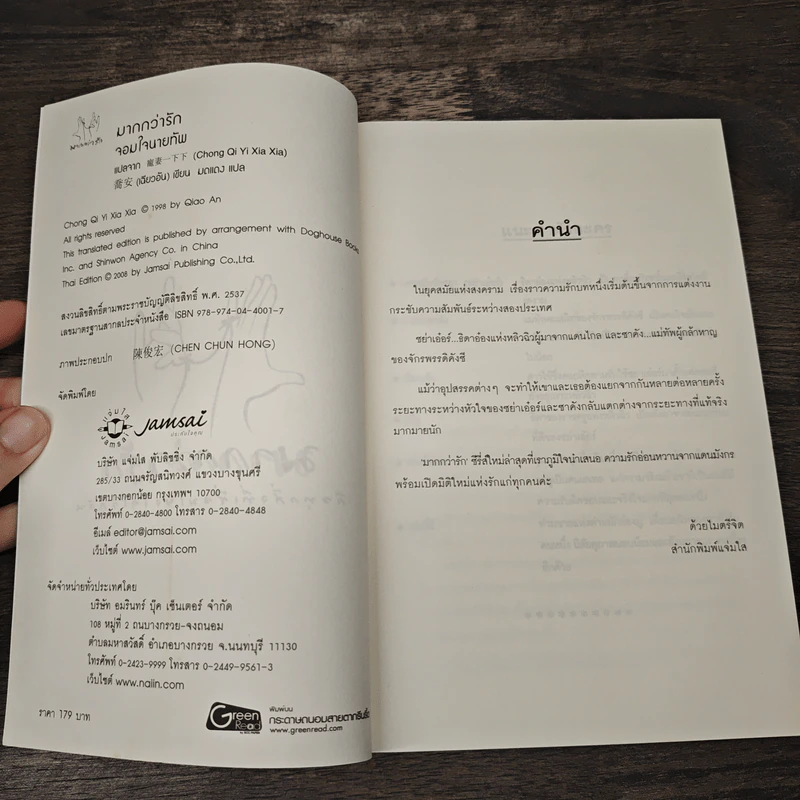 มากกว่ารัก
มากกว่ารัก
จอมใจนายทัพ
แปลจาก 寵妻一下下 (Chong Qi Yi Xia Xia)
喬安 (เฉียวอัน) เขียน มดแดง แปล
Chong Qi Yi Xia Xia © 1998 by Qiao An
All rights reserved
This translated edition is published by arrangement with Doghouse Books
Inc. and Shinwon Agency Co. in China
Thai Edition © 2008 by Jamsai Publishing Co.,Ltd.
สงวนลิขสิทธิ์ตามพระราชบัญญัติลิขสิทธิ์ พ.ศ. 2537
เลขมาตรฐานสากลประจำหนังสือ ISBN 978-974-04-4001-7
ภาพประกอบปก 陳俊宏 (CHEN CHUN HONG)
จัดพิมพ์โดย
แจ่มใส
Jamsai
Jamsai
บริษัท แจ่มใส พับลิชชิ่ง จำกัด
285/33 ถนนจรัญสนิทวงศ์ แขวงบางขุนศรี
เขตบางกอกน้อย กรุงเทพฯ 10700
โทรศัพท์ 0-2840-4800 โทรสาร 0-2840-4848
อีเมล์ editor@jamsai.com
เว็บไซต์ www.jamsai.com
จัดจำหน่ายทั่วประเทศโดย
บริษัท อมรินทร์ บุ๊ค เซ็นเตอร์ จำกัด
108 หมู่ที่ 2 ถนนบางกรวย-จงถนอม
ตำบลมหาสวัสดิ์ อำเภอบางกรวย จ.นนทบุรี 11130
โทรศัพท์ 0-2423-9999 โทรสาร 0-2449-9561-3
เว็บไซต์ www.naiin.com
ราคา 179 บาท
Green
Read
พิมพ์บน
กระดาษถนอมสายตากรีนรี้ด
www.greenread.com
คำนำ
ในยุคสมัยแห่งสงคราม เรื่องราวความรักบทหนึ่งเริ่มต้นขึ้นจากการแต่งงาน
กระชับความสัมพันธ์ระหว่างสองประเทศ
ซย่าเอ๋อร์...ธิดาอ๋องแห่งหลิวฉิวผู้มาจากแดนไกล และซาคัง...แม่ทัพผู้กล้าหาญ
ของจักรพรรดิคังซี
แม้ว่าอุปสรรคต่างๆ จะทำให้เขาและเธอต้องแยกจากกันหลายต่อหลายครั้ง
ระยะทางระหว่างหัวใจของซย่าเอ๋อร์และซาคังกลับแตกต่างจากระยะทางที่แท้จริง
มากมายนัก
'มากกว่ารัก' ซีรี่ส์ใหม่ล่าสุดที่เราภูมิใจนำเสนอ ความรักอ่อนหวานจากแดนมังกร
พร้อมเปิดมิติใหม่แห่งรักแก่ทุกคนค่ะ
ด้วยไมตรีจิต
สำนักพิมพ์แจ่มใส